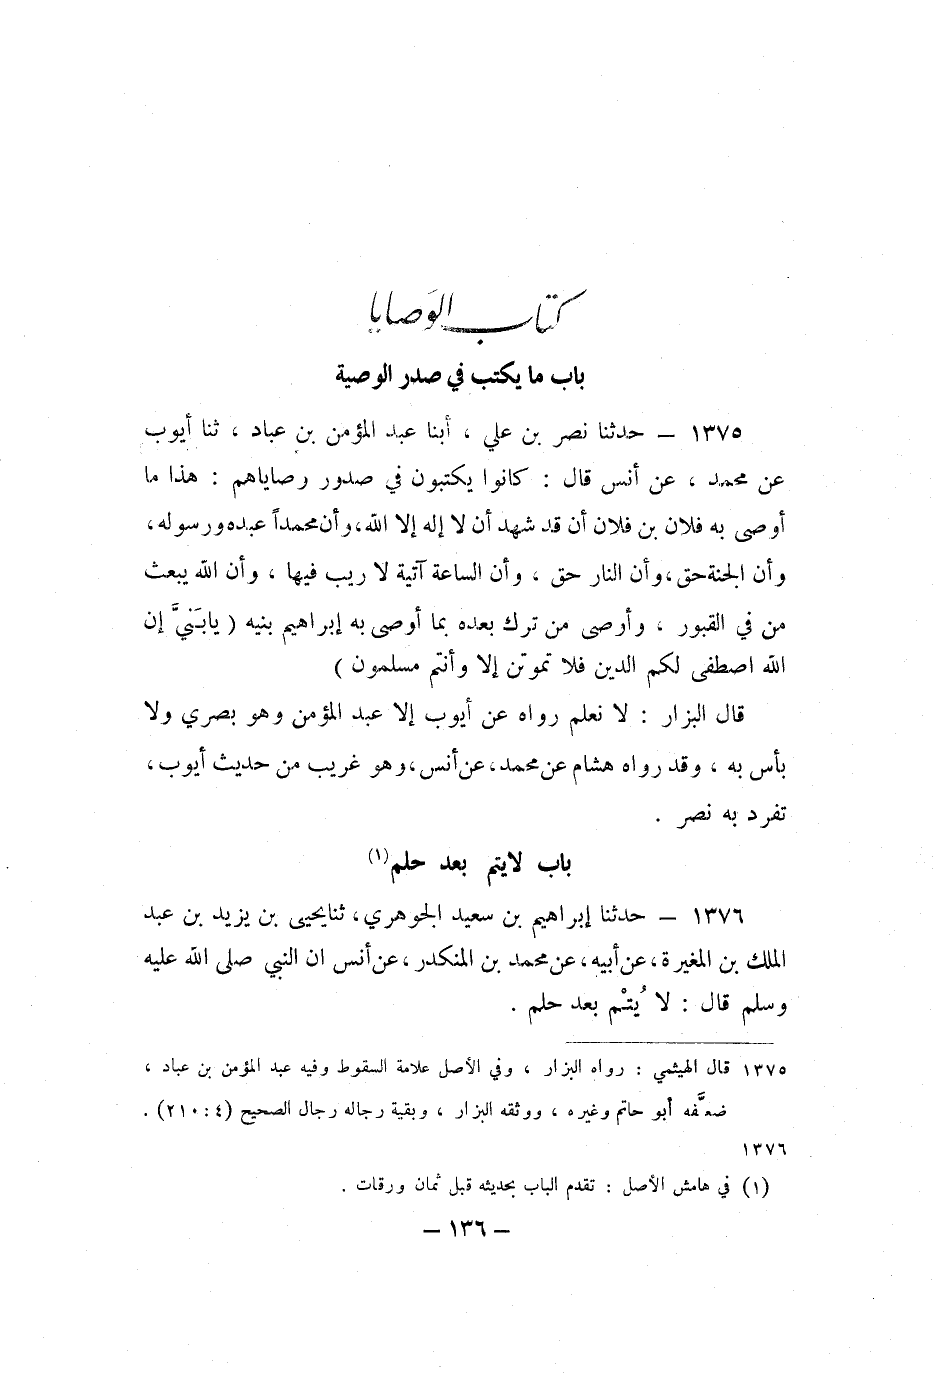 كتاب الوَصايا
باب ما يكتب في صدر الوصية
١٣٧٥ – حدثنا نصر بن علي ، أبنا عبد المؤمن بن عباد ، ثنا أيوب
عن محمد ، عن أنس قال : كانوا يكتبون في صدور رصاياهم : هذا ما
أوصى به فلان بن فلان أن قد شهد أن لا إله إلا الله، وأن محمداً عبده ورسوله،
وأن الجنة حق، وأن النار حق ، وأن الساعة آتية لا ريب فيها ، وأن الله يبعث
من في القبور ، وأوصى من ترك بعده بما أوصى به إبراهيم بنيه ( يابَنيَّ إن
الله اصطفى لكم الدين فلا تموتن إلا وأنتم مسلمون )
قال البزار : لا نعلم رواه عن أيوب إلا عبد المؤمن وهو بصري ولا
بأس به ، وقد رواه هشام عن محمد، عن أنس، وهو غريب من حديث أيوب ،
تفرد به نصر .
باب لايتم بعد حلم (١)
١٣٧٦ – حدثنا إبراهيم بن سعيد الجوهري، ثنا يحيى بن يزيد بن عبد
الملك بن المغيرة، عن أبيه، عن محمد بن المنكدر، عن أنس ان النبي صلى الله عليه
وسلم قال : لا يُتْم بعد حلم .
١٣٧٥ قال الهيثمي : رواه البزار ، وفي الأصل علامة السقوط وفيه عبد المؤمن بن عباد ،
ضعَّفه أبو حاتم وغيره ، ووثقه البزار ، وبقية رجاله رجال الصحيح (٤ : ٢١٠) .
١٣٧٦
(١) في هامش الأصل : تقدم الباب بحديثه قبل ثمان ورقات .
– ١٣٦ –